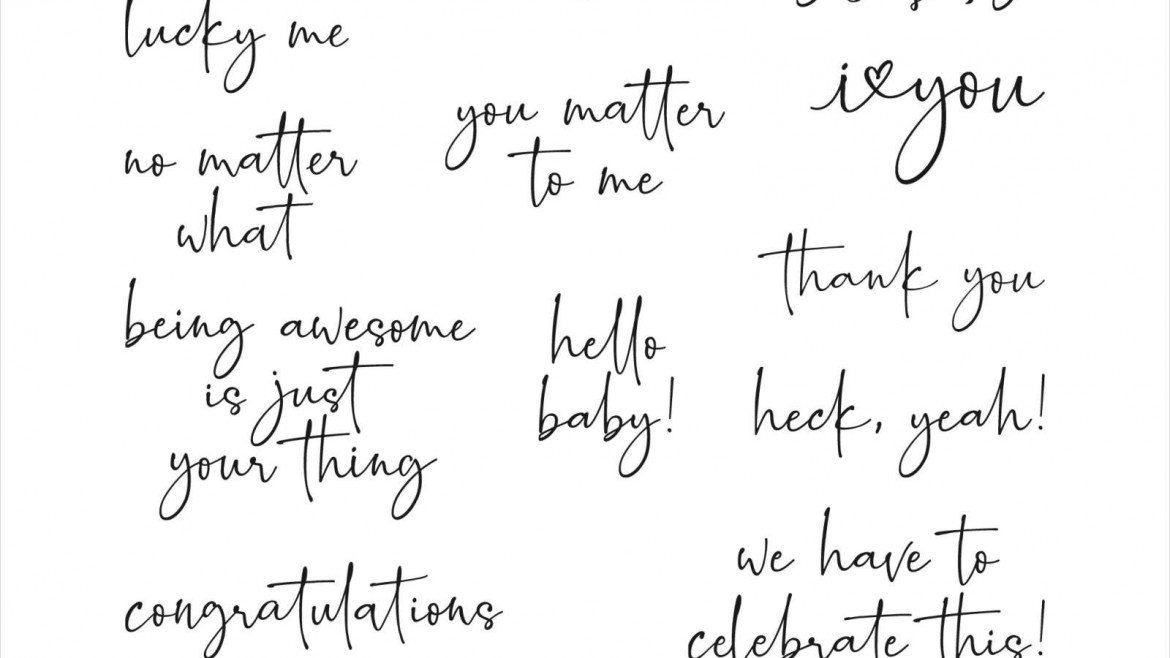 lucky me
i♡you
you matter
to me
no matter
what
thank you
being awesome
is just
your thing
hello
baby!
heck, yeah!
we have to
celebrate this!
congratulations